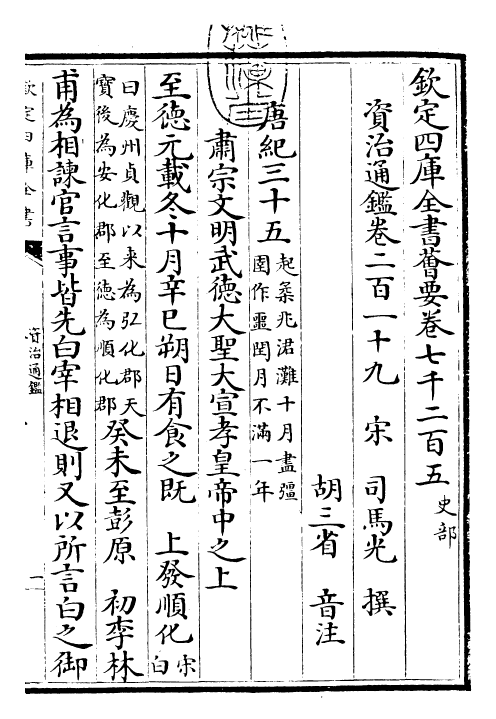 欽定四庫全書薈要卷七千二百五 史部
資治通鑑卷二百一十九 宋 司馬光 撰
胡三省 音注
唐紀三十五 起柔兆涒灘十月盡彊
圉作噩閏月不滿一年
肅宗文明武德大聖大宣孝皇帝中之上
至德元載冬十月辛巳朔日有食之既 上發順化 宋
白
曰慶州貞觀以來為弘化郡天
寶後為安化郡至德為順化郡 癸未至彭原 初李林
甫為相諫官言事皆先白宰相退則又以所言白之御
欽定四庫全書
資治通鑑